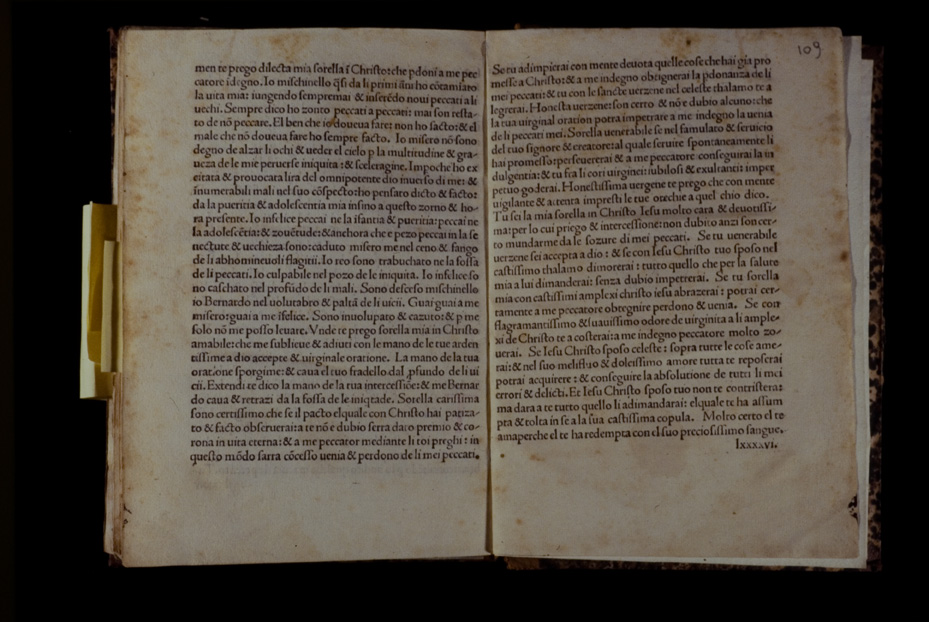 men te prego dilecta mia sorella ĩ Christo: che pdoni a me pec
catore idegno. Io mischinello q̃si da li primi ãni ho cõtamiato
la uita mia: iungendo sempremai & inserẽdo noui peccati a li
uechi. Sempre dico ho zonto peccati a peccati: mai son resta-
to de nõ peccare. El ben che io doueua fare: non ho facto: & el
male che nõ doueua fare ho sempre facto. Io misero nõ sono
degno de alzar li ochi & ueder el cielo p la multitudine & gra-
ueza de le mie peruerse iniquita: & sceleragine. Impoche ho ex
citata & prouocata lira del omnipotente dio inuerso di me: &
ĩnumerabili mali nel suo cõspecto: ho pensato dicto & facto:
da la pueritia & adolescentia mia insino a questo zorno & ho-
ra presente. Io infelice peccai ne la ifantia & pueritia: peccai ne
la adolescẽtia: & zouẽtude: & anchora che e pezo peccai in la se
nectute & uechieza sono: caduto misero me nel ceno & fango
de li abhomineuoli flagitii. Io reo sono trabuchato ne la fossa
de li peccati. Io culpabile nel pozo de le iniquita. Io infelice so
no caschato nel profũdo de li mali. Sono desceso mischinello
io Bernardo nel uolutabro & paltã de li uicii. Guai guai a me
misero: guai a me ĩfelice. Sono inuolupato & cazuto: & p me
solo nõ me posso leuare. Vnde te prego sorella mia in Christo
amabile: che me sublieue & adiuti con le mano de le tue arden
tissime a dio accepte & uirginale oratione. La mano de la tua
oratione sporgime: & caua el tuo fradello dal pfundo de li ui
cii. Extendi te dico la mano de la tua intercessiõe: & me Bernar
do caua & retrazi da la fossa de le iniqtade. Sorella carissima
sono certissimo che se il pacto el quale con Christo hai patiza-
to & facto obseruerai: a te nõ e dubio serra dato premio & co-
rona in uita eterna: & a me peccator mediante li toi preghi: in
questo mõdo sarra cõcesso uenia & perdono de li mei peccati.
109
Se tu adimpierai con mente deuota quelle cose che hai gia pro
messe a Christo: & a me indegno obtignerai la pdonanza de li
mei peccati: & tu con le sancte uerzene nel celeste thalamo te a
legrerai. Honesta uerzene: son certo & nõ e dubio alcuno: che
la tua uirginal oration potra impetrare a me indegno la uenia
de li peccati mei. Sorella uenerabile se nel famulato & seruicio
del tuo signore & creatore: al quale seruire spontaneamente li
hai promesso: perseuererai & a me peccatore conseguirai la in
dulgentia: & tu fra li cori uirginei: iubilosi & exultanti: imper
petuo goderai. Honestissima uergene te prego che con mente
uigilante & attenta impresti le tue orechie a quel chio dico.
Tu sei la mia sorella in Christo Iesu molto cara & deuotissi-
ma: per lo cui priego & intercessione: non dubito anzi son cer-
to mundarme da le sozure di mei peccati. Se tu uenerabile
uerzene sei accepta a dio: & se con Iesu Christo tuo sposo nel
castissimo thalamo dimorerai: tutto quello che per la salute
mia a lui dimanderai: senza dubio impetrerai. Se tu sorella
mia con castissimi amplexi christo iesu abrazerai: potrai cer-
tamente a me peccatore obtegnire perdono & uenia. Se con
flagramantissimo & suauissimo odore de uirginita a li ample-
xi de Christo te a costerai: a me indegno peccatore molto zo-
uerai. Se Iesu Christo sposo celeste: sopra tutte le cose ame-
rai: & nel suo melifluo & dolcissimo amore tutta te reposerai
potrai acquirere: & conseguire la absolutione de tutti li mei
errori & delicti. Et Iesu Christo sposo tuo non te contristerai:
ma dara a te tutto quello li adimandarai: el quale te ha assum
pta & tolta in se a la sua castissima copula. Molto certo el te
ama perche el te ha redempta con el suo preciosissimo sangue.
lxxxxvi.